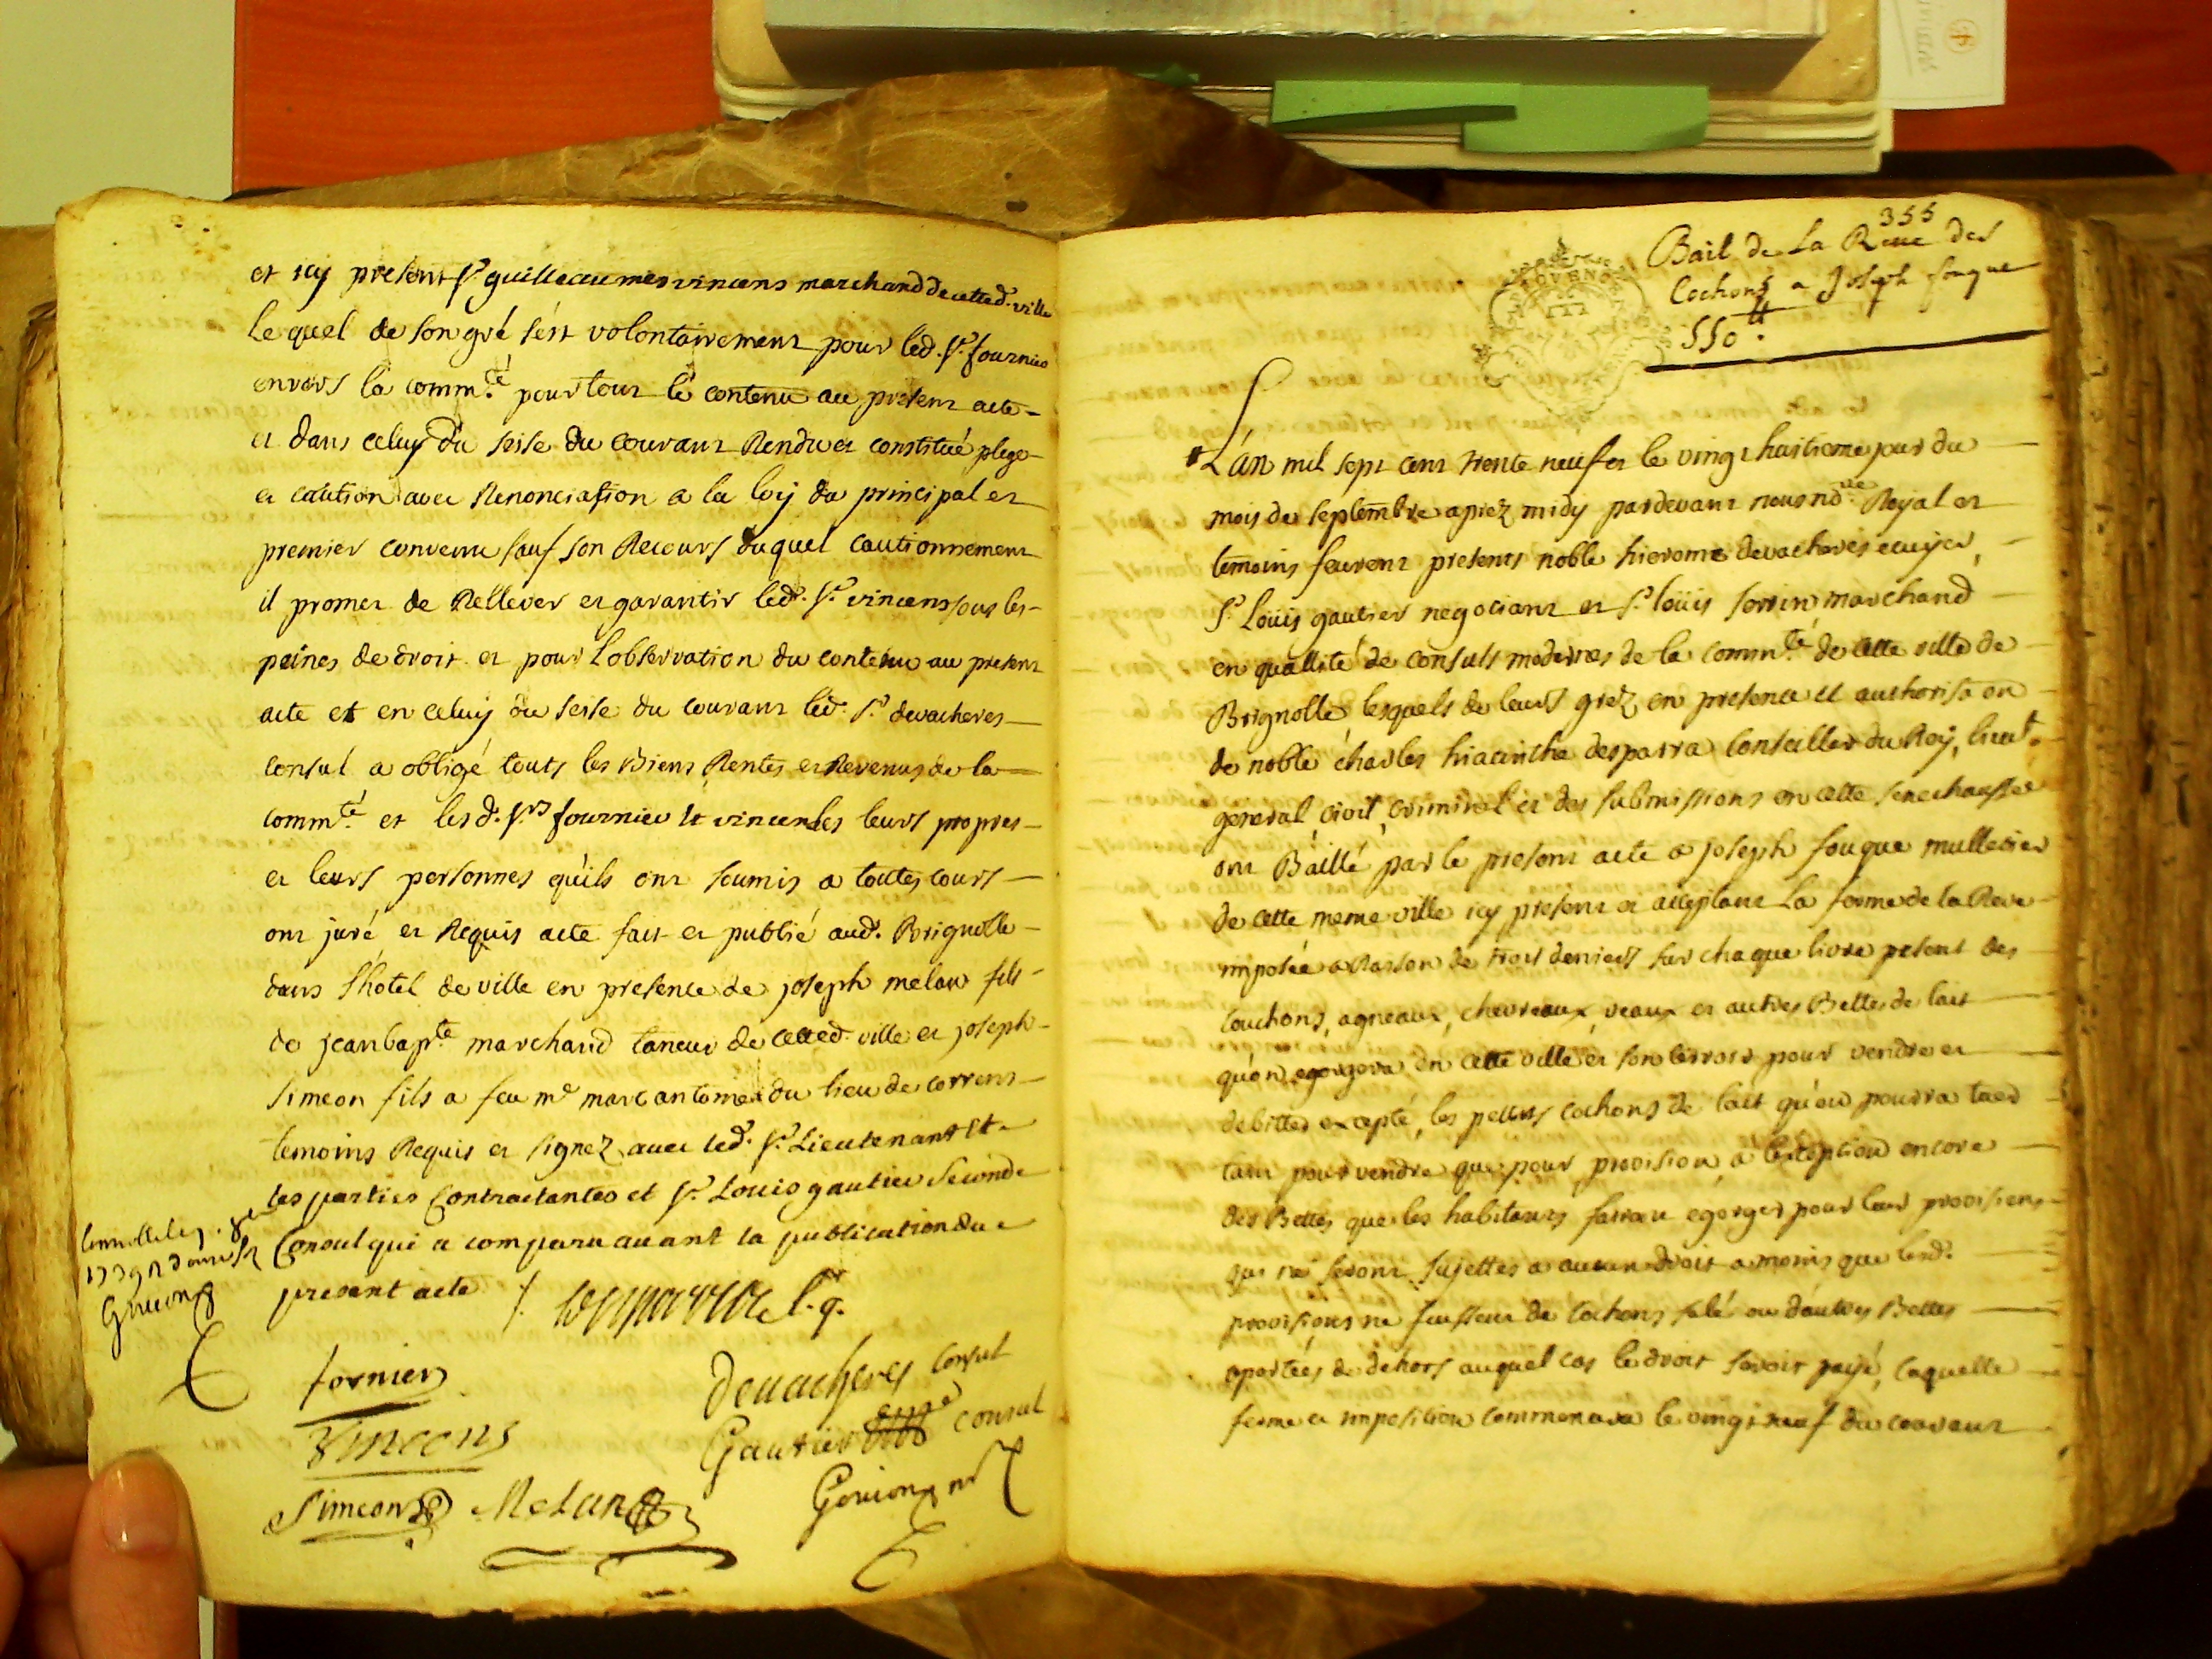 et icy present sr. guilleaumes vincens marchand de cetted. ville
lequel de son gré s'est volontairement pour led. sr. fournier
envers la commté. pour tout le contenu au present acte
et dans celuy du seise du courant Rendu et constitué plege
et caution avec Renonciation a la loy du principal et
premier convenu sauf son Recours duquel cautionnement
il promet de Rellever et garantir led. sr. vincens sous les
peines de droit et pour l'observation du contenu au present
acte et en celuy du seise du courant led. sr. devacheres
consul a obligé touts les Biens Rentes et Revenus de la
commté. et lesd. srs fournier et vincens les leurs propres
et leurs personnes qu'ils ont soumis a toutes cours
ont juré et Requis acte fait et publié aud. Brignolle
dans l'hotel de ville en presence de joseph melan fils
de jean bapte. marchand taneur de cetted. ville et joseph
simeon fils a feu me marc antoine du lieu de correns
temoins Requis et signez avec led. sr. Lieutenant et
les parties Contractantes et sr. Louis gautier second
Consul qui a comparu avant la publication du
present acte /. l. g.
1739
Goujon
fornier
devacheres consul
Vincens
Gautier consul
Simeon Melan
Goujon nre
355
Bail de La Reve des
Cochons a Joseph fouque
550 ₶.
L'an mil sept cent trente neuf et le vingt huitieme jour du
mois de septembre aprez midy pardevant nous nore. Royal et
temoins feurent presents noble hierome devacheres ecuyer,
sr. Loüis gautier negociant et sr. loüis sorrin marchand
en quallité de consuls modernes de la commté. de cette ville de
Brignolle lesquels de leurs grez en presence et authorisaon
de noble charles hiacinthe desparra Conseiller du Roy, lieut.
general civil, criminel et des submissions en cette senechaussée
ont Baillé par le present acte a joseph fouque mulletier
de cette meme ville icy present et acceptant La ferme de la Reve
imposée a Raison de trois deniers sur chaque livre pesent des
couchons, agneaux, chevreaux, veaux et autres Bettes de lait
qu'on egorgera en cette ville et son terroir pour vendre et
debitter excepté, les petits cochons de lait qu'on pourra tuer
tant pour vendre que pour provision, a l'exeption encore
des Bettes que les habitants fairon egorger pour leur provisions
qui ne seront sujettes a aucun droit a moins que lesd.
provisions ne feussent de cochons salé ou d'autres Bettes
aportées de dehors auquel cas le droit seroit payé, laquelle
ferme et imposition commencera le vingt neuf du courant